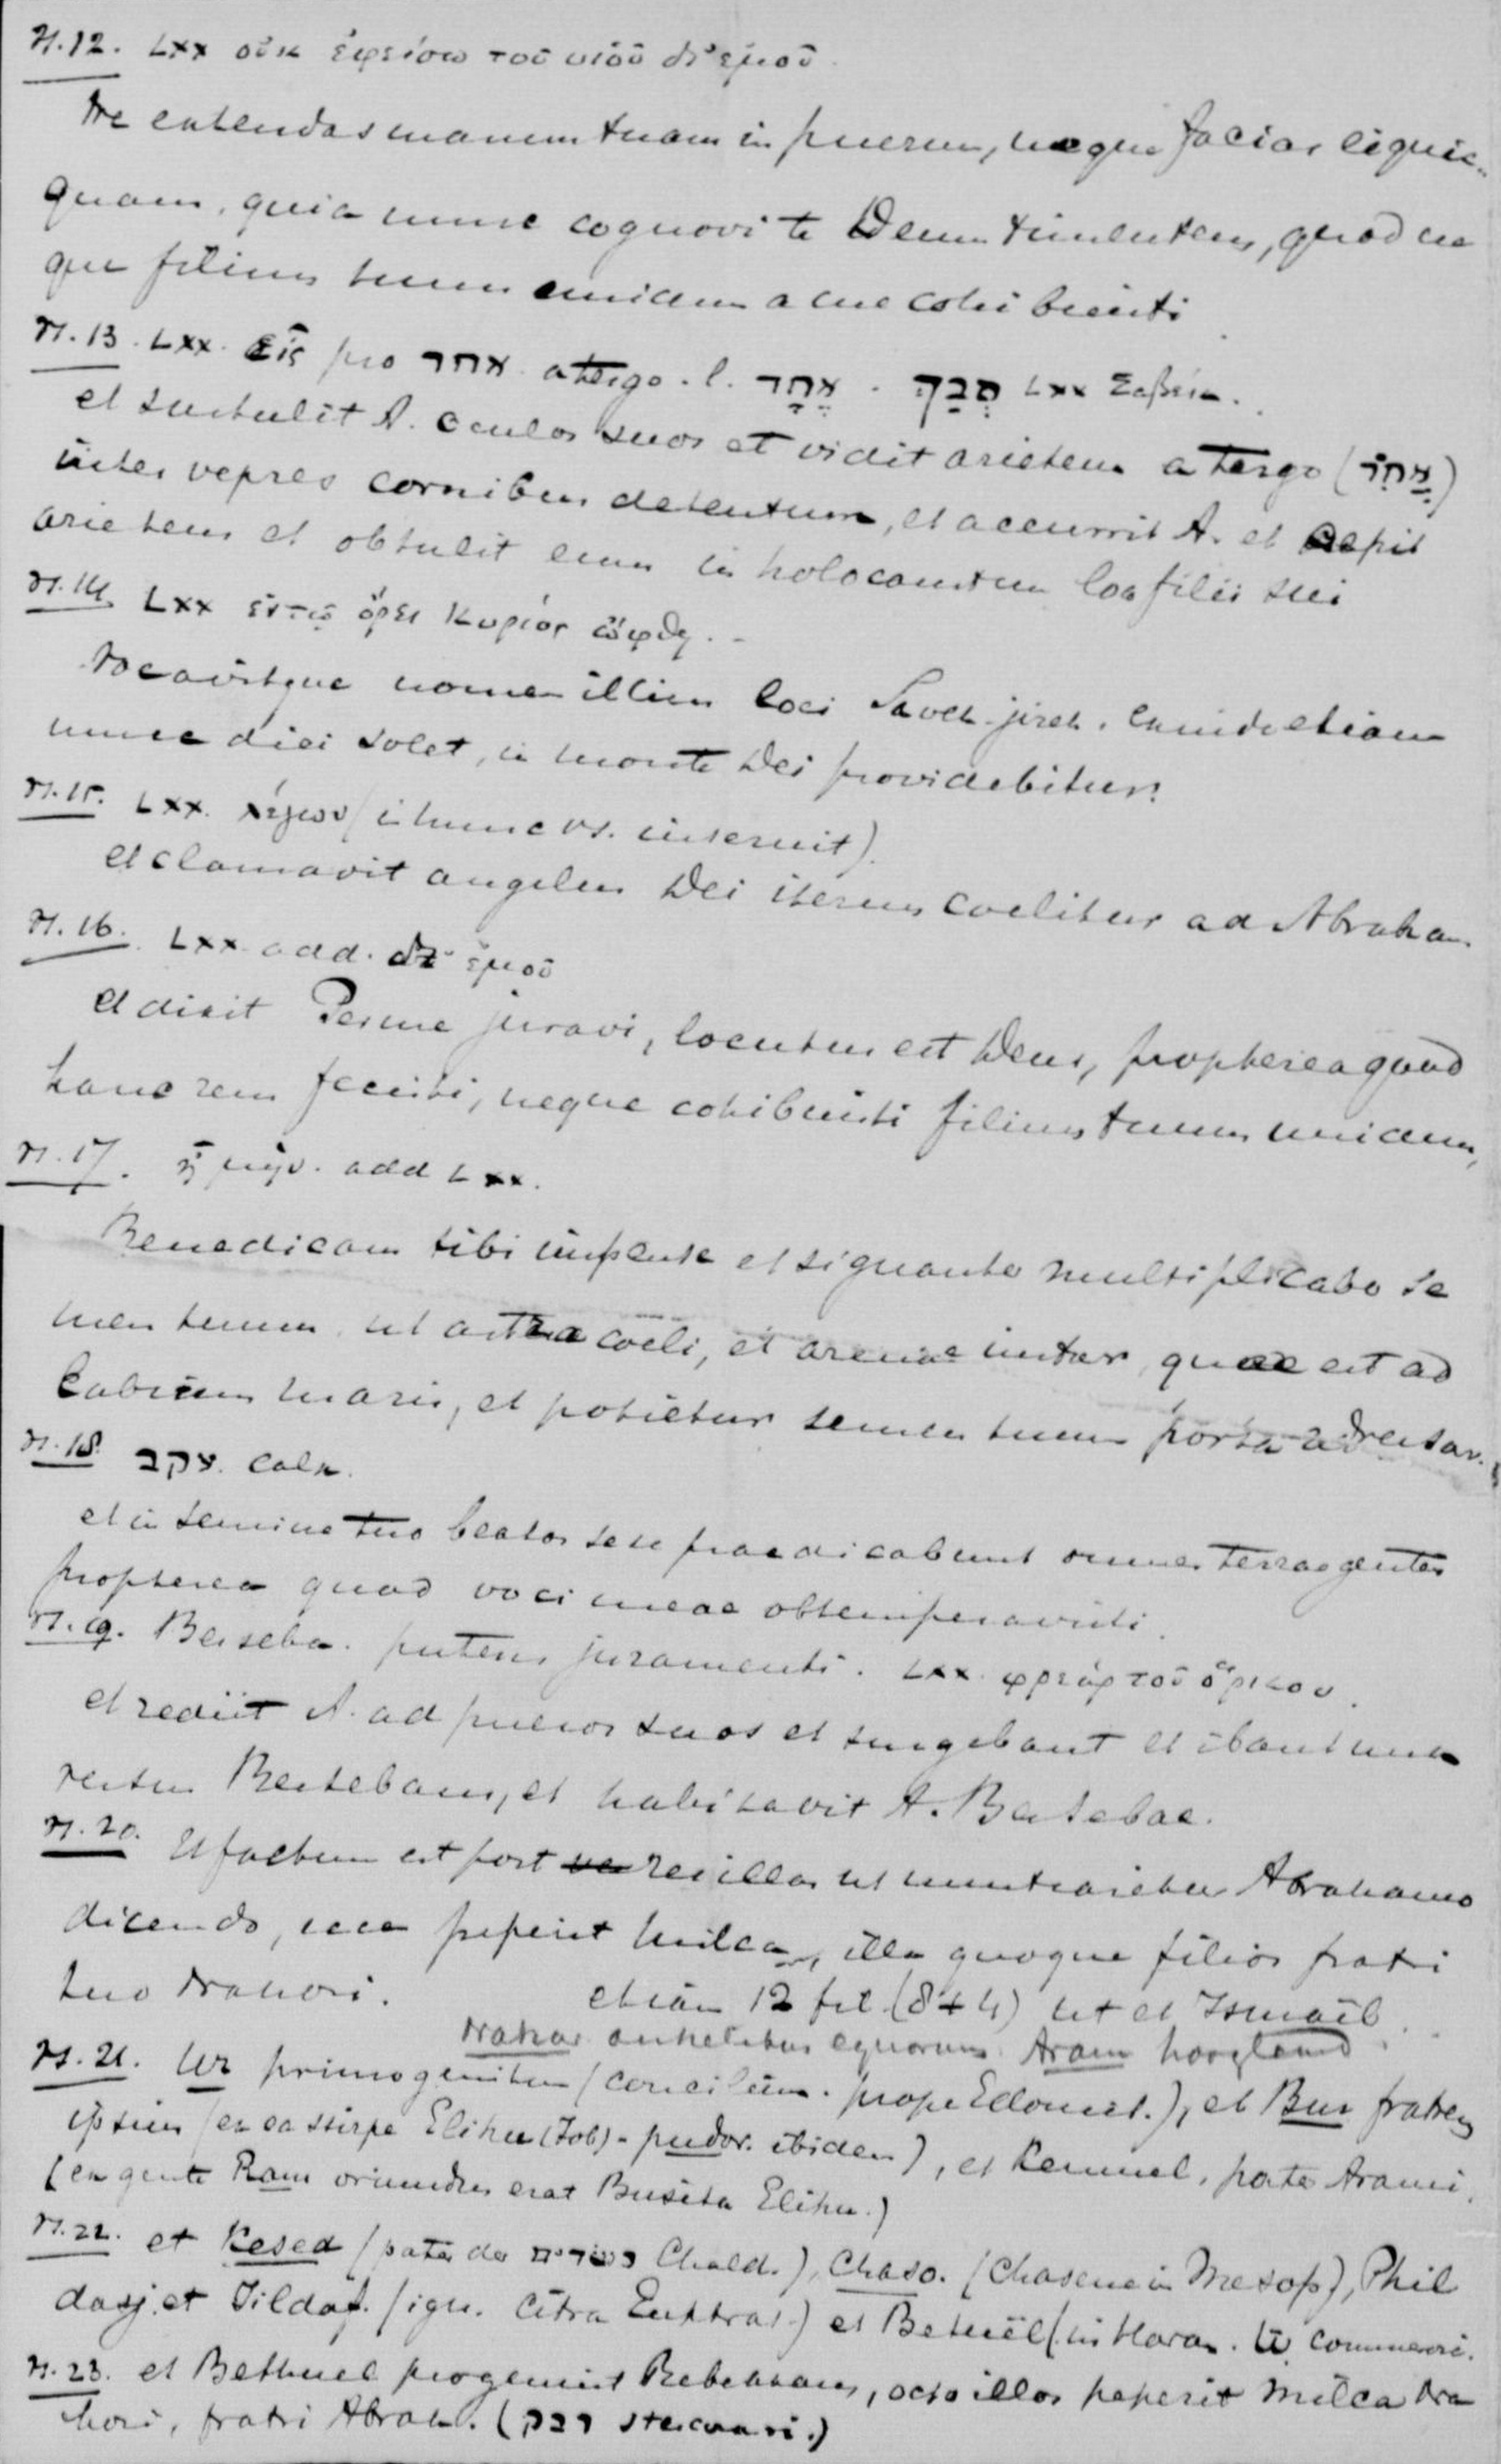 vs. 12. Lxx οὐκ ἐφείσω τοῦ υἱοῦ δι' ἐμοῦ.
Ne extendas manum tuam in puerum, neque facias ei quic-
quam, quia nunc cognovi te Deum timentem, quod ne
que filium tuum unicum a me cohibuisti
vs. 13. Lxx. εἷς pro אחד. a tergo. l. אֶחָד. סְבַךְ Lxx Σαβέκ.
et sustulit A. oculos suos et vidit arietem a tergo (אַחַר)
inter vepres cornibus detentum, et accurrit A. et cepit
arietem et obtulit eum in holocaustum loco filii sui
vs. 14. Lxx ἐν τῷ ὄρει Κυριός ὤφθη. -
Vocavitque nomen illius loci Javeh-jireh. Unde etiam
nunc dici solet, in monte Dei providebitur.
vs. 15. Lxx. λέγων (in hunc vs. inseruit).
et clamavit angelus Dei iterum coelitus ad Abraham.
vs. 16. Lxx add. δι' ἐμοῦ
et dixit Per me juravi, locutus est Deus, propterea quod
hanc rem fecisti, neque cohibuisti filium tuum unicum,
vs. 17. ἦ μήν. add Lxx.
Benedicam tibi impense et signanter multiplicabo se
men tuum, ut astra coeli, et arenae instar, quae est ad
labium maris, et potietur semen tuum porta adversar.
vs. 18. עקב. calx.
et in semine tuo beatos sese praedicabunt omnes terrae gentes
propterea quod voci meae obtemperavisti.
vs. 19. Berseba. puteus juramenti. Lxx. φρεάρ τοῦ ὅρκου.
et rediit A. ad pueros suos et surgebant et ibant una
versus Bersebam, et habitavit A. Bersebae.
vs. 20. Et factum est post res illas ut nuntiaretur Abrahamo
dicendo, ecce peperit Milca, illa quoque filios fratri
tuo Nahori. etiam 12 fil. (8+4) ut et Ismaël.
Nahor anhelitus equorum. Aram hoogland.
vs. 21. Uz primogenitum (concilium. prope Edomit.), et Bus fratrem
ipsius (ex ea stirpe Elihu (Job) - pudor. ibidem), et Kemuel, pater Arami.
(ex gente Ram oriundus erat Busita Elihu.)
vs. 22. et Kesed (pater der כשדים Chald.), Chaso. (Chasene in Mesop), Phil
dasj. et Jildaf. (ign. citra Euphrat.) et Betuël (in Haran.
vs. 23. et Bethuel progenuit Rebekkam, octo illos peperit Milca Na
hori, fratri Abrah. (רבק)